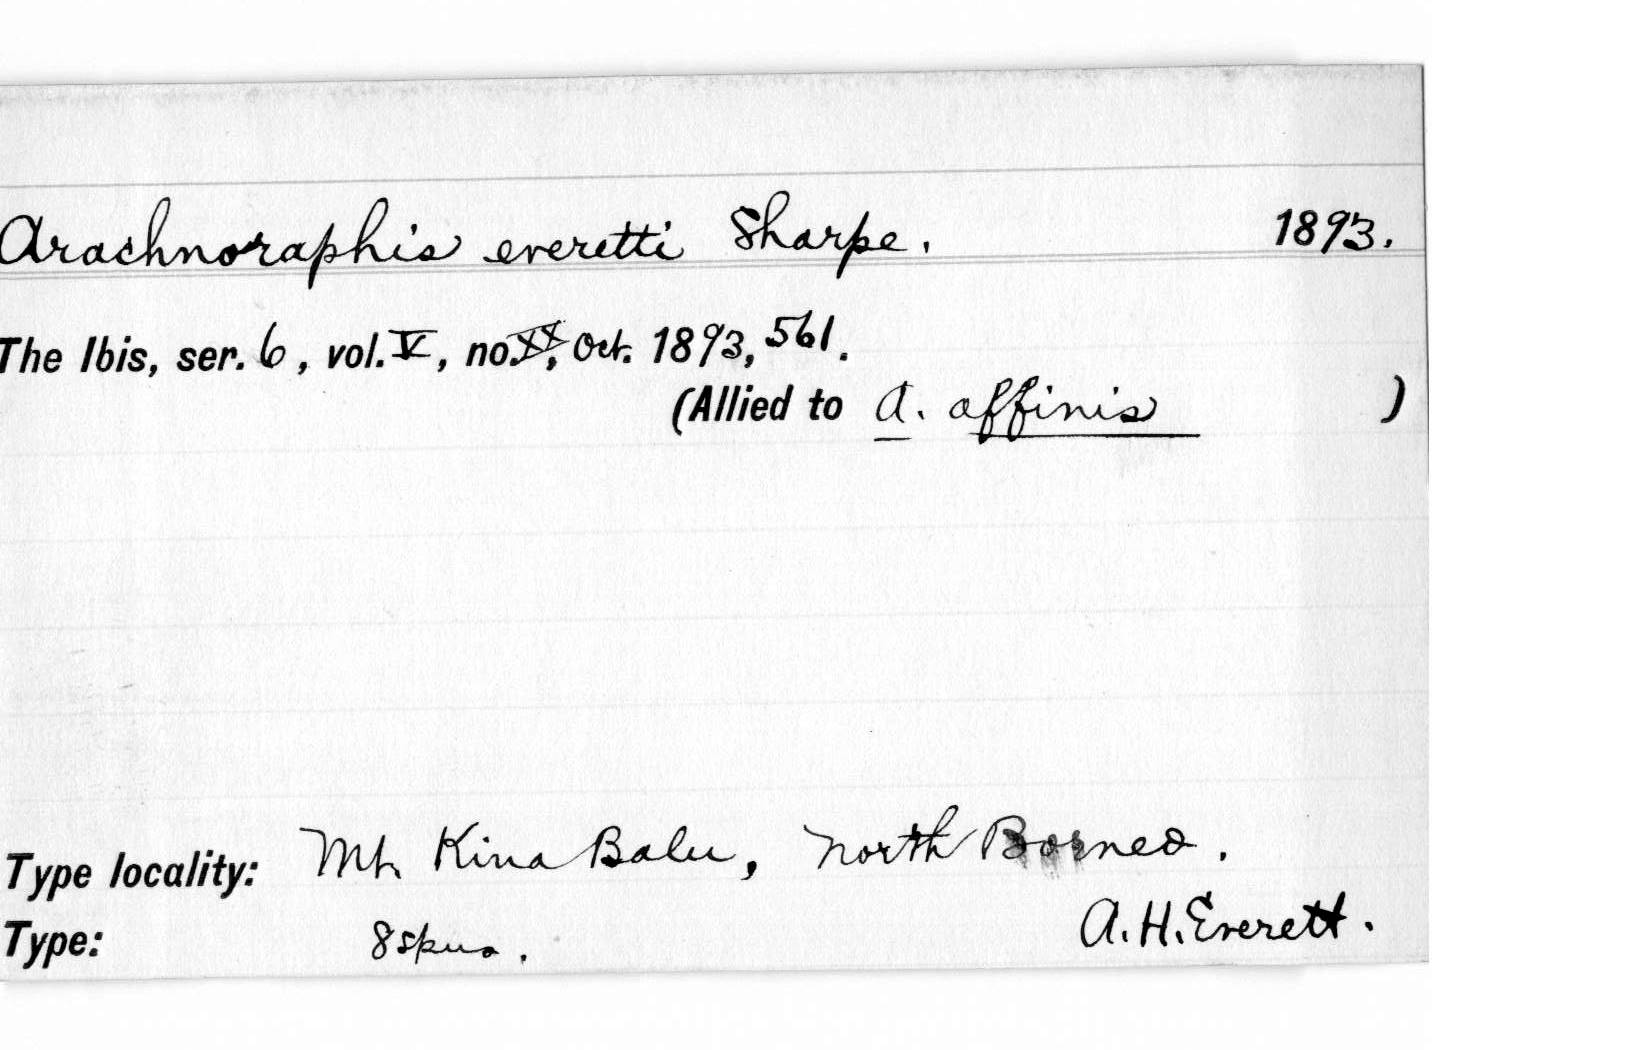 Arachnoraphis everetti Sharpe. 1893.
The Ibis, ser. 6, vol. V, no. XX, Oct. 1893, 561.
(Allied to A. affinis )
Type locality: Mt. Kina Balu, North Borneo.
A. H. Everett.
Type: 8 spms.